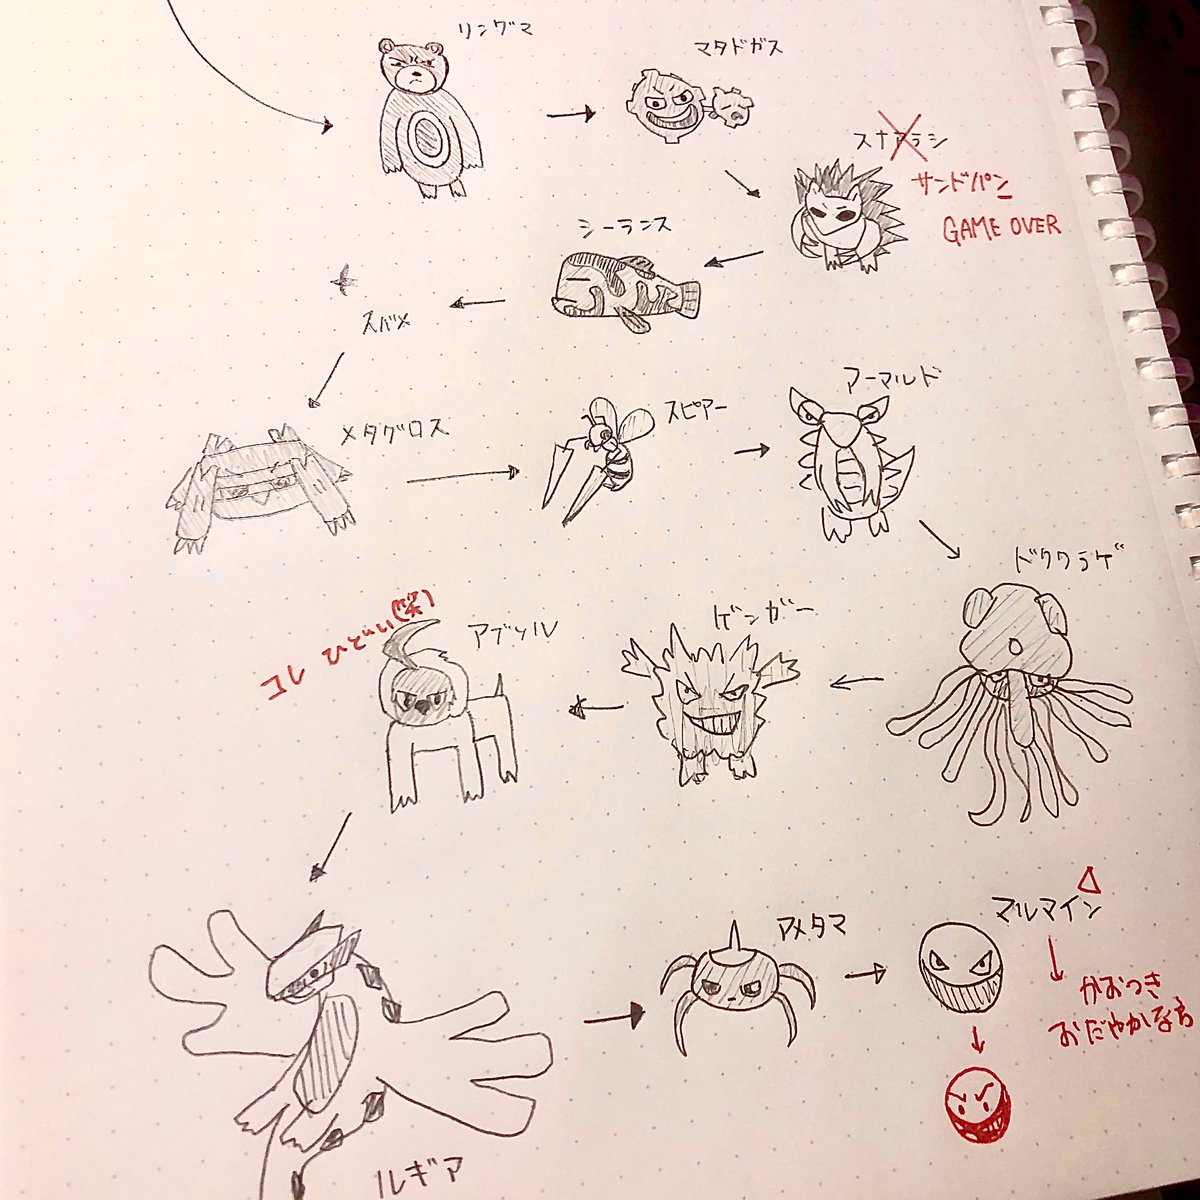 リングマ
マタドガス
スナアラシ
サンドパン
GAME OVER
シーランス
スバメ
メタグロス
スピアー
アーマルド
ドククラゲ
ゲンガー
アブソル
コレ ひどい(笑)
ルギア
アメタマ
マルマイン
かおつき
おだやかなち